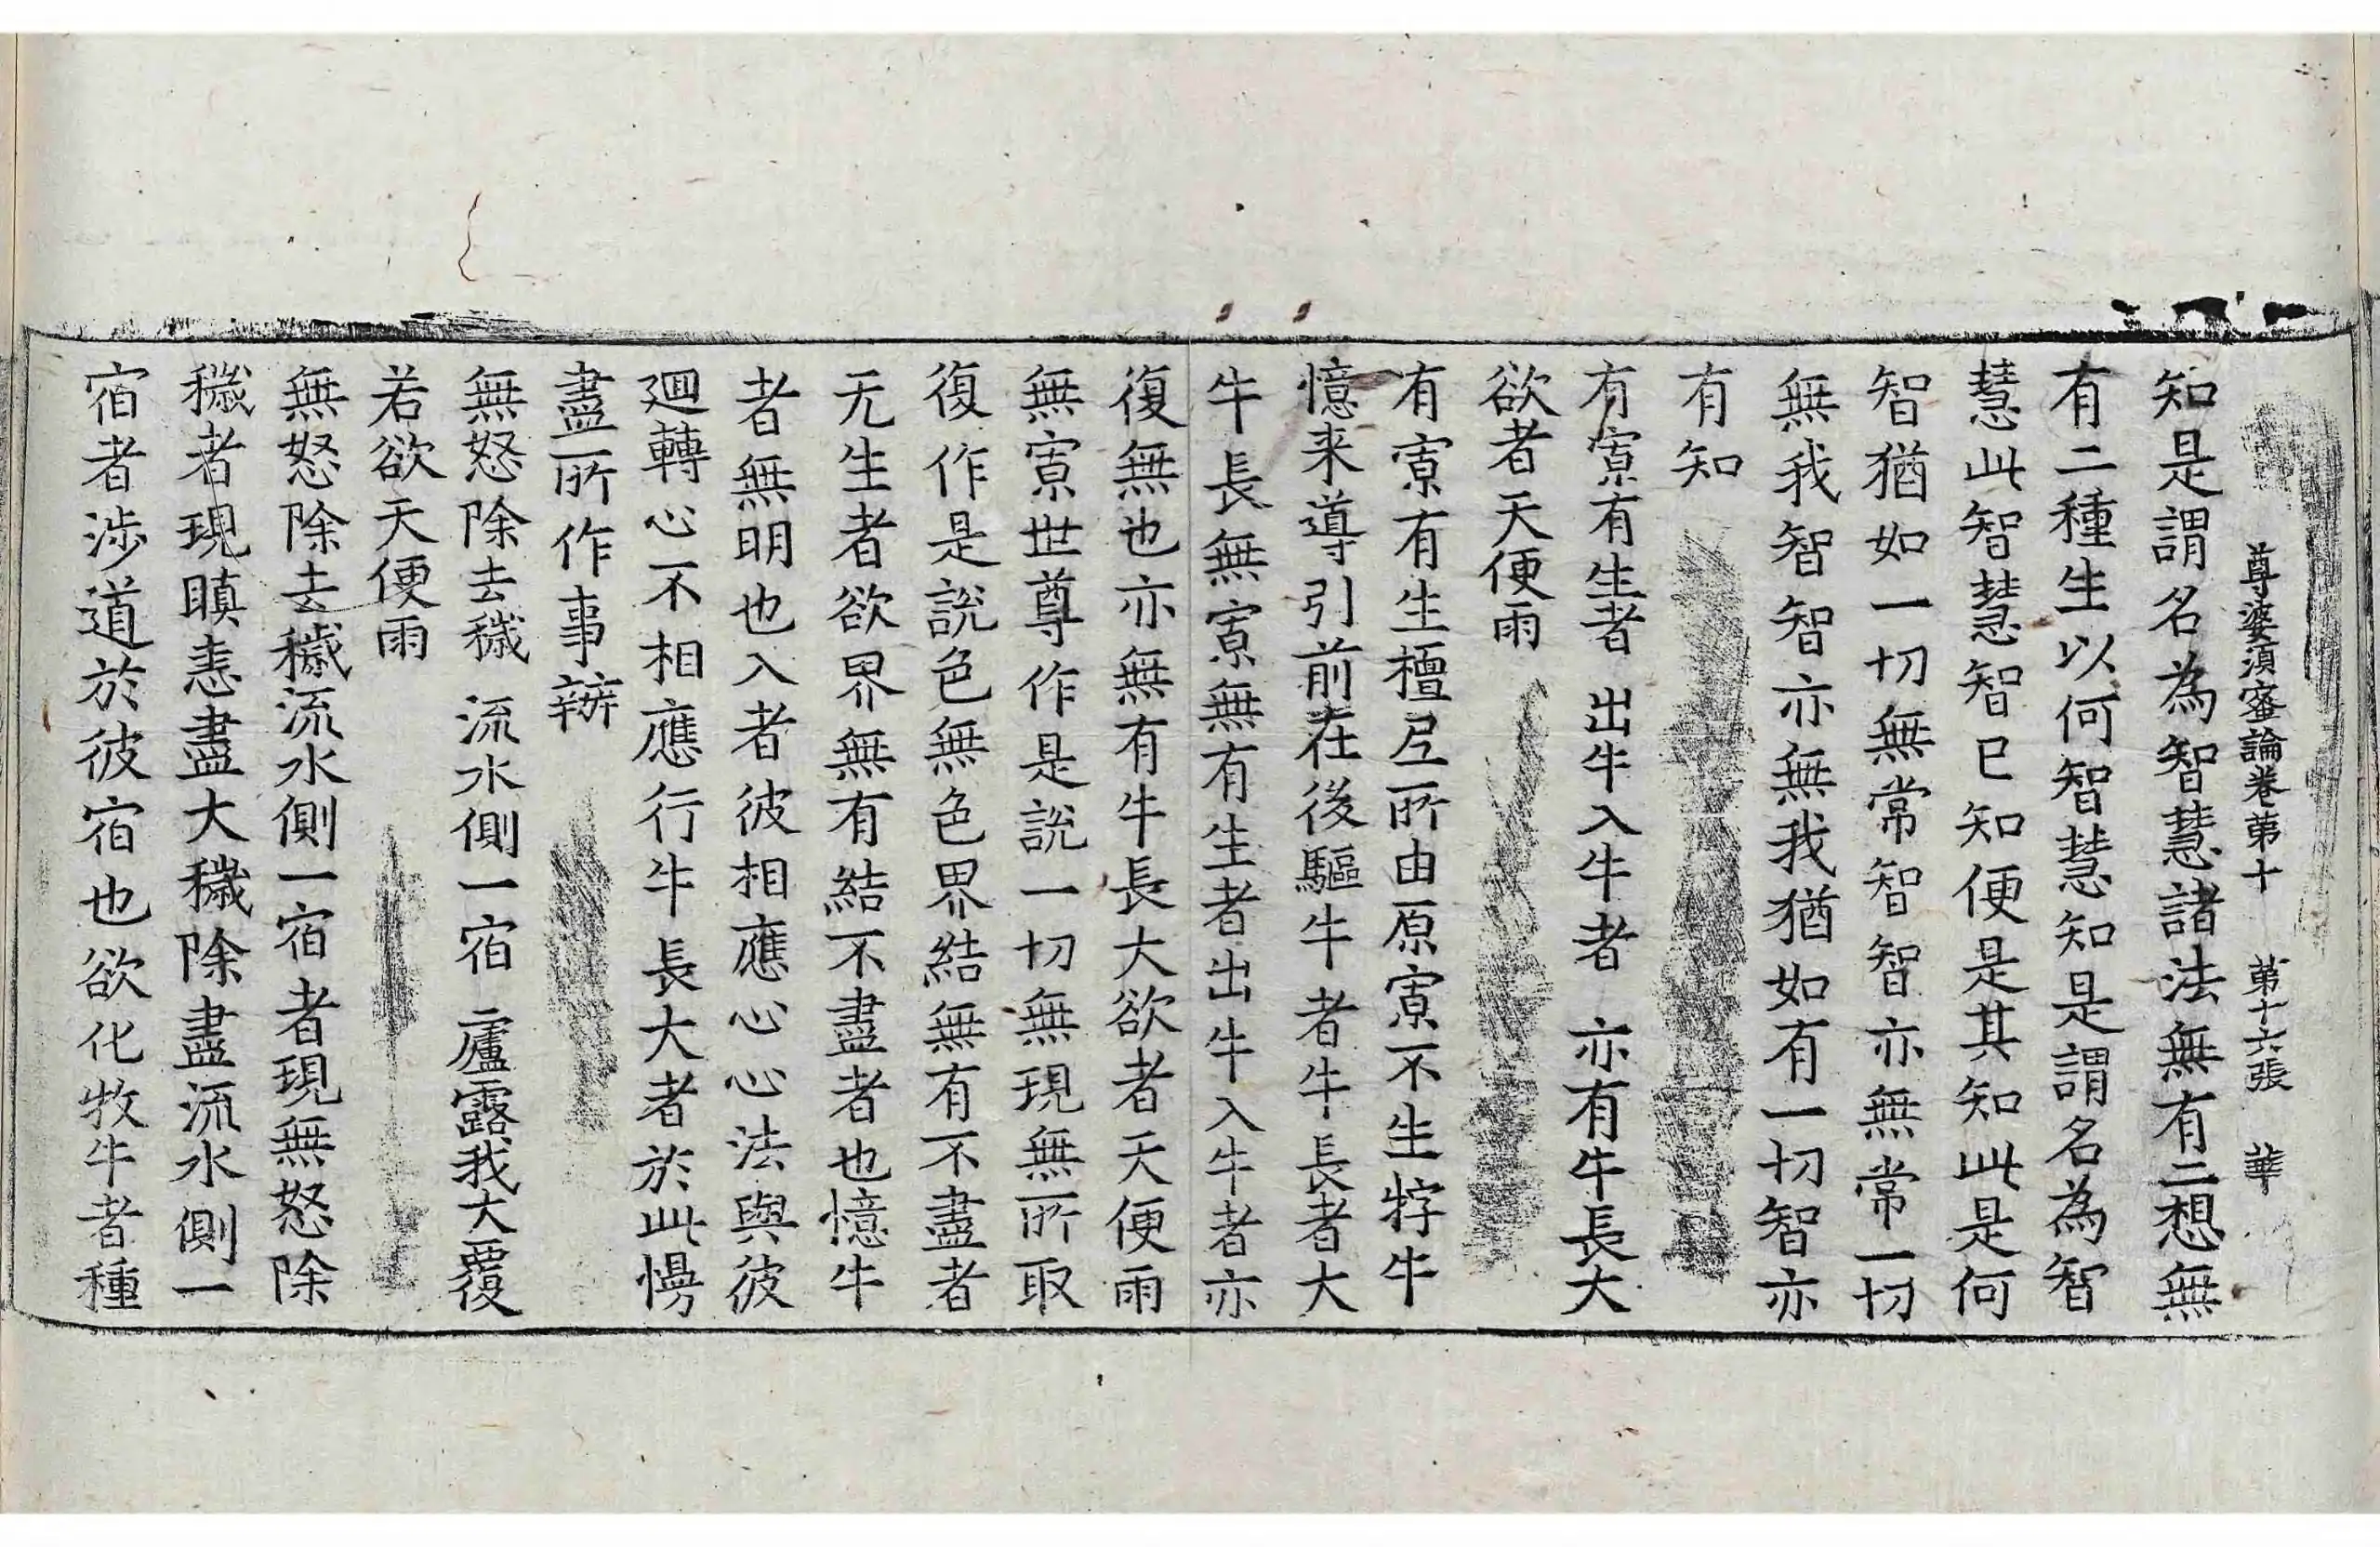 尊婆須蜜論卷苐十 苐十六張 華
知是謂名為智慧諸法無有二想無
有二種生以何智慧知是謂名為智
慧此智慧智巳知便是其知此是何
智猶如一切無常智智亦無常一切
無我智智亦無我猶如有一切智亦
有知
有㝡有生者 出牛入牛者 亦有牛長大
欲者天便雨
有㝡有生檀𡰱所由原㝡不生牸牛
憶来導引前在後驅牛者牛長者大
牛長無㝡無有生者出牛入牛者亦
復無也亦無有牛長大欲者天便雨
無㝡世尊作是說一切無現無所取
復作是說色無色界結無有不盡者
无生者欲界無有結不盡者也憶牛
者無明也入者彼相應心心法與彼
迴轉心不相應行牛長大者於此慢
盡所作事辦
無怒除去穢 流水側一宿 廬露我大覆
若欲天便雨
無怒除去穢流水側一宿者現無怒除
穢者現瞋恚盡大穢除盡流水側一
宿者涉道於彼宿也欲化牧牛者種